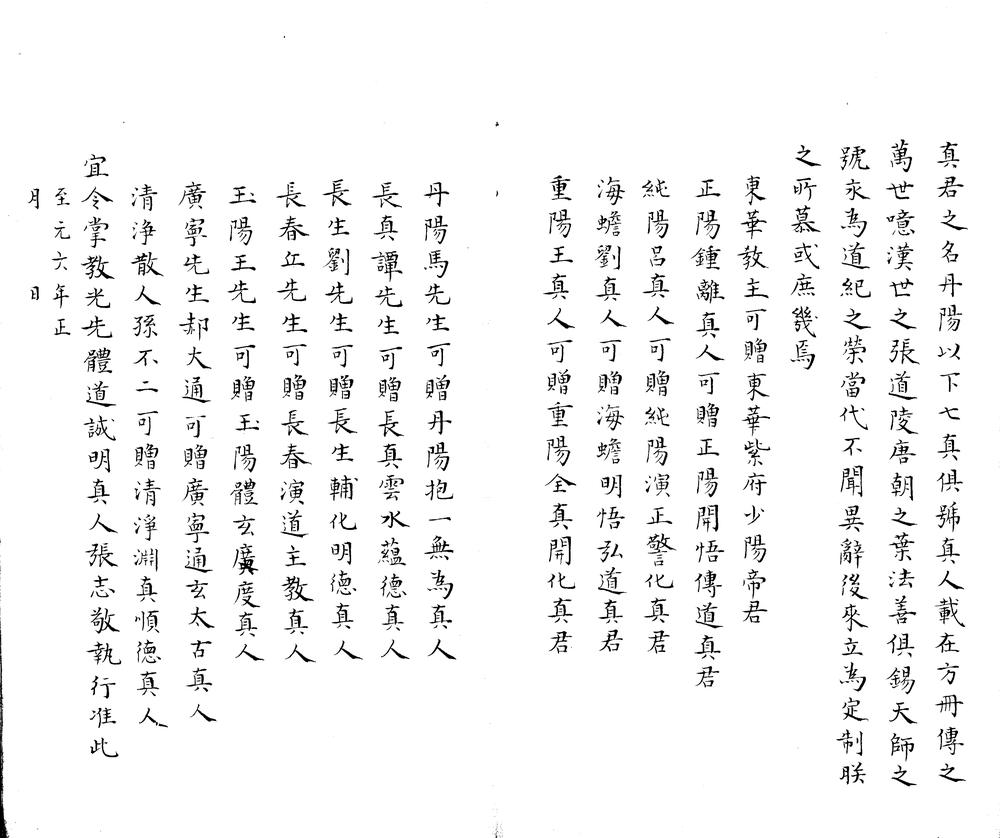 真君之名丹陽以下七真俱號真人載在方冊傳之
萬世噫漢世之張道陵唐朝之葉法善俱錫天師之
號永為道紀之榮當代不聞異辭後來立為定制朕
之所慕或庶幾焉
東華教主可贈東華紫府少陽帝君
正陽鍾離真人可贈正陽開悟傳道真君
純陽呂真人可贈純陽演正警化真君
海蟾劉真人可贈海蟾明悟弘道真君
重陽王真人可贈重陽全真開化真君
丹陽馬先生可贈丹陽抱一無為真人
長真譚先生可贈長真雲水蘊德真人
長生劉先生可贈長生輔化明德真人
長春丘先生可贈長春演道主教真人
玉陽王先生可贈玉陽體玄廣度真人
廣寧先生郝大通可贈廣寧通玄太古真人
清淨散人孫不二可贈清淨淵真順德真人
宜令掌教光先體道誠明真人張志敬執行准此
至元六年正
月 日